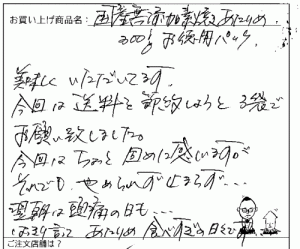 お買い上げ商品名: 国産無添加素焼あたりめ
300g お徳用パック。
美味しくいただいてます。
今回は送料を節約しようと3袋で
お願い致しました。
今回はちょっと固めに感じいますが
それでも、やめられず止まらず…
翌朝は頭痛の日も…
あたりめ食べすぎの日々で
ご注文店舗は？